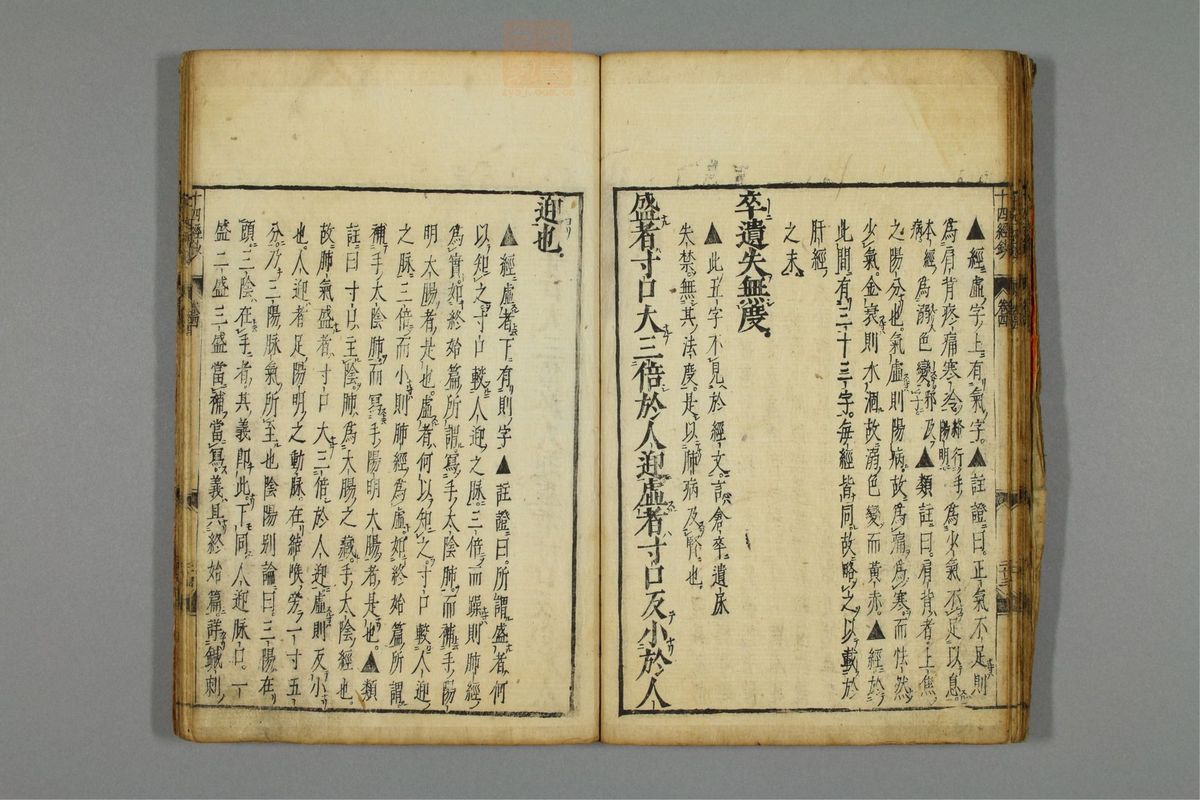 十四經鈔
卷四
▲經虛字上有氣字。▲註證曰。正氣不足則
爲肩背疼痛寒冷。邪行手陽明。爲少氣不足以息。
本經病爲溺色變。邪及▲類註曰。肩背者上焦
之陽分也。氣虛則陽病。故爲痛爲寒而怯然
少氣。金衰則水涸故溺色變而黃赤▲經於
此間有三十三字。每經皆同故略之以載於
肝經
之末
卒遺失無度。
▲此五字不見於經文。言倉卒遺尿
失禁。無其法度。是以肺病及腎也
盛者寸口大三倍於人迎虛者寸口反小於人
迎也。
▲經虛者下有則字▲註證曰。所謂盛者何
以知之寸口較人迎之脉三倍而躁則肺經
爲實。如終始篇所謂寫手太陰肺而補手陽
明大腸者是也。虛者何以知之寸口較人迎
之脉三倍而小則肺經爲虛如終始篇所謂
補手太陰肺而寫手陽明大腸者是也。▲類
註曰寸口主陰。肺爲大腸之藏。手太陰經也
故肺氣盛者寸口大三倍於人迎虛則反小
也。人迎者足陽明之動脉在結喉旁一寸五
分。乃三陽脉氣所至也陰陽別論曰三陽在
頭三陰在手者其義即此。下同人迎脉口一
盛二盛三盛當補當寫。義具終始篇詳鍼刺
十四經鈔
卷四